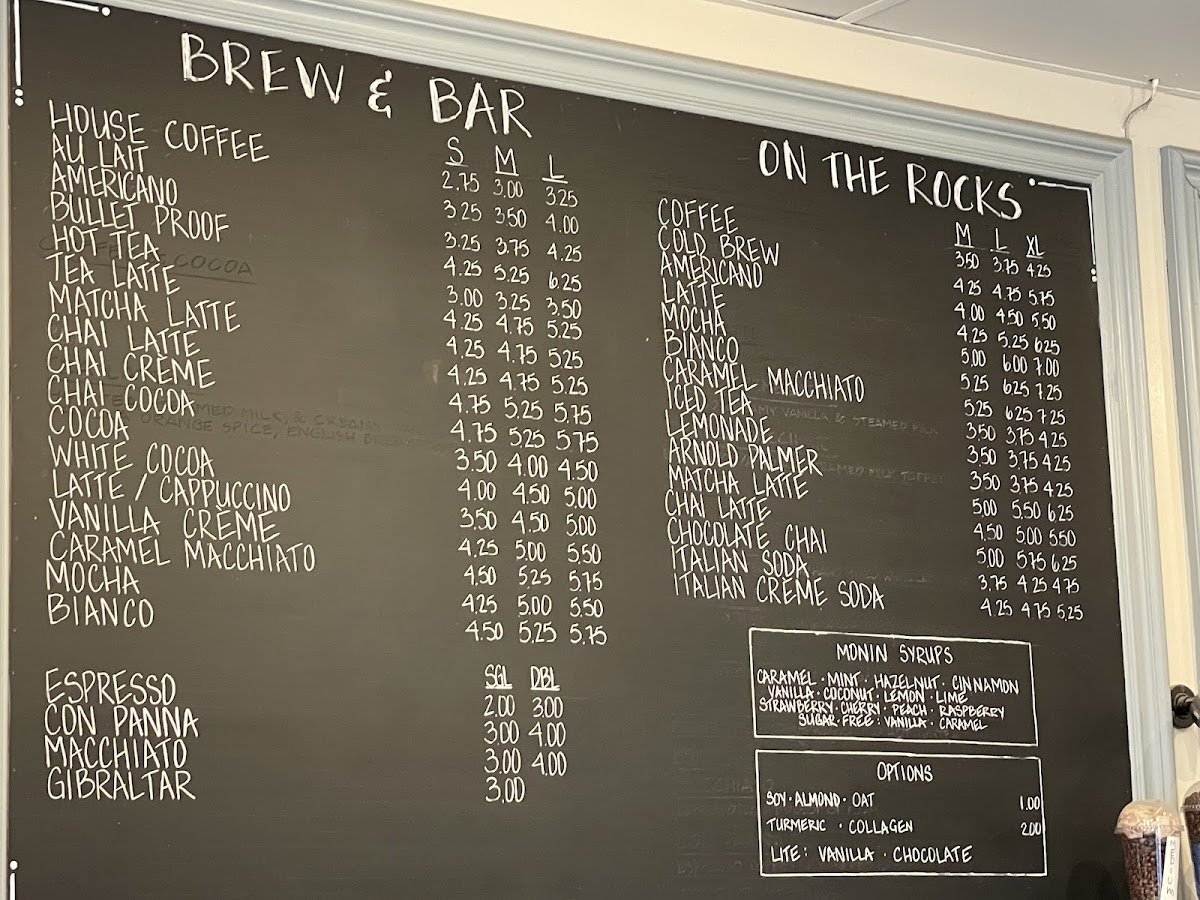 BREW & BAR
S M L
HOUSE COFFEE 2.75 3.00 3.25
AU LAIT 3.25 3.50 4.00
AMERICANO 3.25 3.75 4.25
BULLET PROOF 4.25 5.25 6.25
HOT TEA 3.00 3.25 3.50
TEA LATTE 4.25 4.75 5.25
MATCHA LATTE 4.25 4.75 5.25
CHAI LATTE 4.25 4.75 5.25
CHAI CRÈME 4.75 5.25 5.75
CHAI COCOA 4.75 5.25 5.75
COCOA 3.50 4.00 4.50
WHITE COCOA 4.00 4.50 5.00
LATTE / CAPPUCCINO 3.50 4.50 5.00
VANILLA CRÈME 4.25 5.00 5.50
CARAMEL MACCHIATO 4.50 5.25 5.75
MOCHA 4.25 5.00 5.50
BIANCO 4.50 5.25 5.75
SGL DBL
ESPRESSO 2.00 3.00
CON PANNA 3.00 4.00
MACCHIATO 3.00 4.00
GIBRALTAR 3.00
ON THE ROCKS
M L XL
COFFEE 3.50 3.75 4.25
COLD BREW 4.25 4.75 5.75
AMERICANO 4.00 4.50 5.50
LATTE 4.25 5.25 6.25
MOCHA 5.00 6.00 7.00
BIANCO 5.25 6.25 7.25
CARAMEL MACCHIATO 5.25 6.25 7.25
ICED TEA 3.50 3.75 4.25
LEMONADE 3.50 3.75 4.25
ARNOLD PALMER 3.50 3.75 4.25
MATCHA LATTE 5.00 5.50 6.25
CHAI LATTE 4.50 5.00 5.50
CHOCOLATE CHAI 5.00 5.75 6.25
ITALIAN SODA 3.75 4.25 4.75
ITALIAN CRÈME SODA 4.25 4.75 5.25
MONIN SYRUPS
CARAMEL · MINT · HAZELNUT · CINNAMON
VANILLA · COCONUT · LEMON · LIME
STRAWBERRY · CHERRY · PEACH · RASPBERRY
SUGAR·FREE : VANILLA · CARAMEL
OPTIONS
SOY · ALMOND · OAT 1.00
TURMERIC · COLLAGEN 2.00
LITE : VANILLA · CHOCOLATE